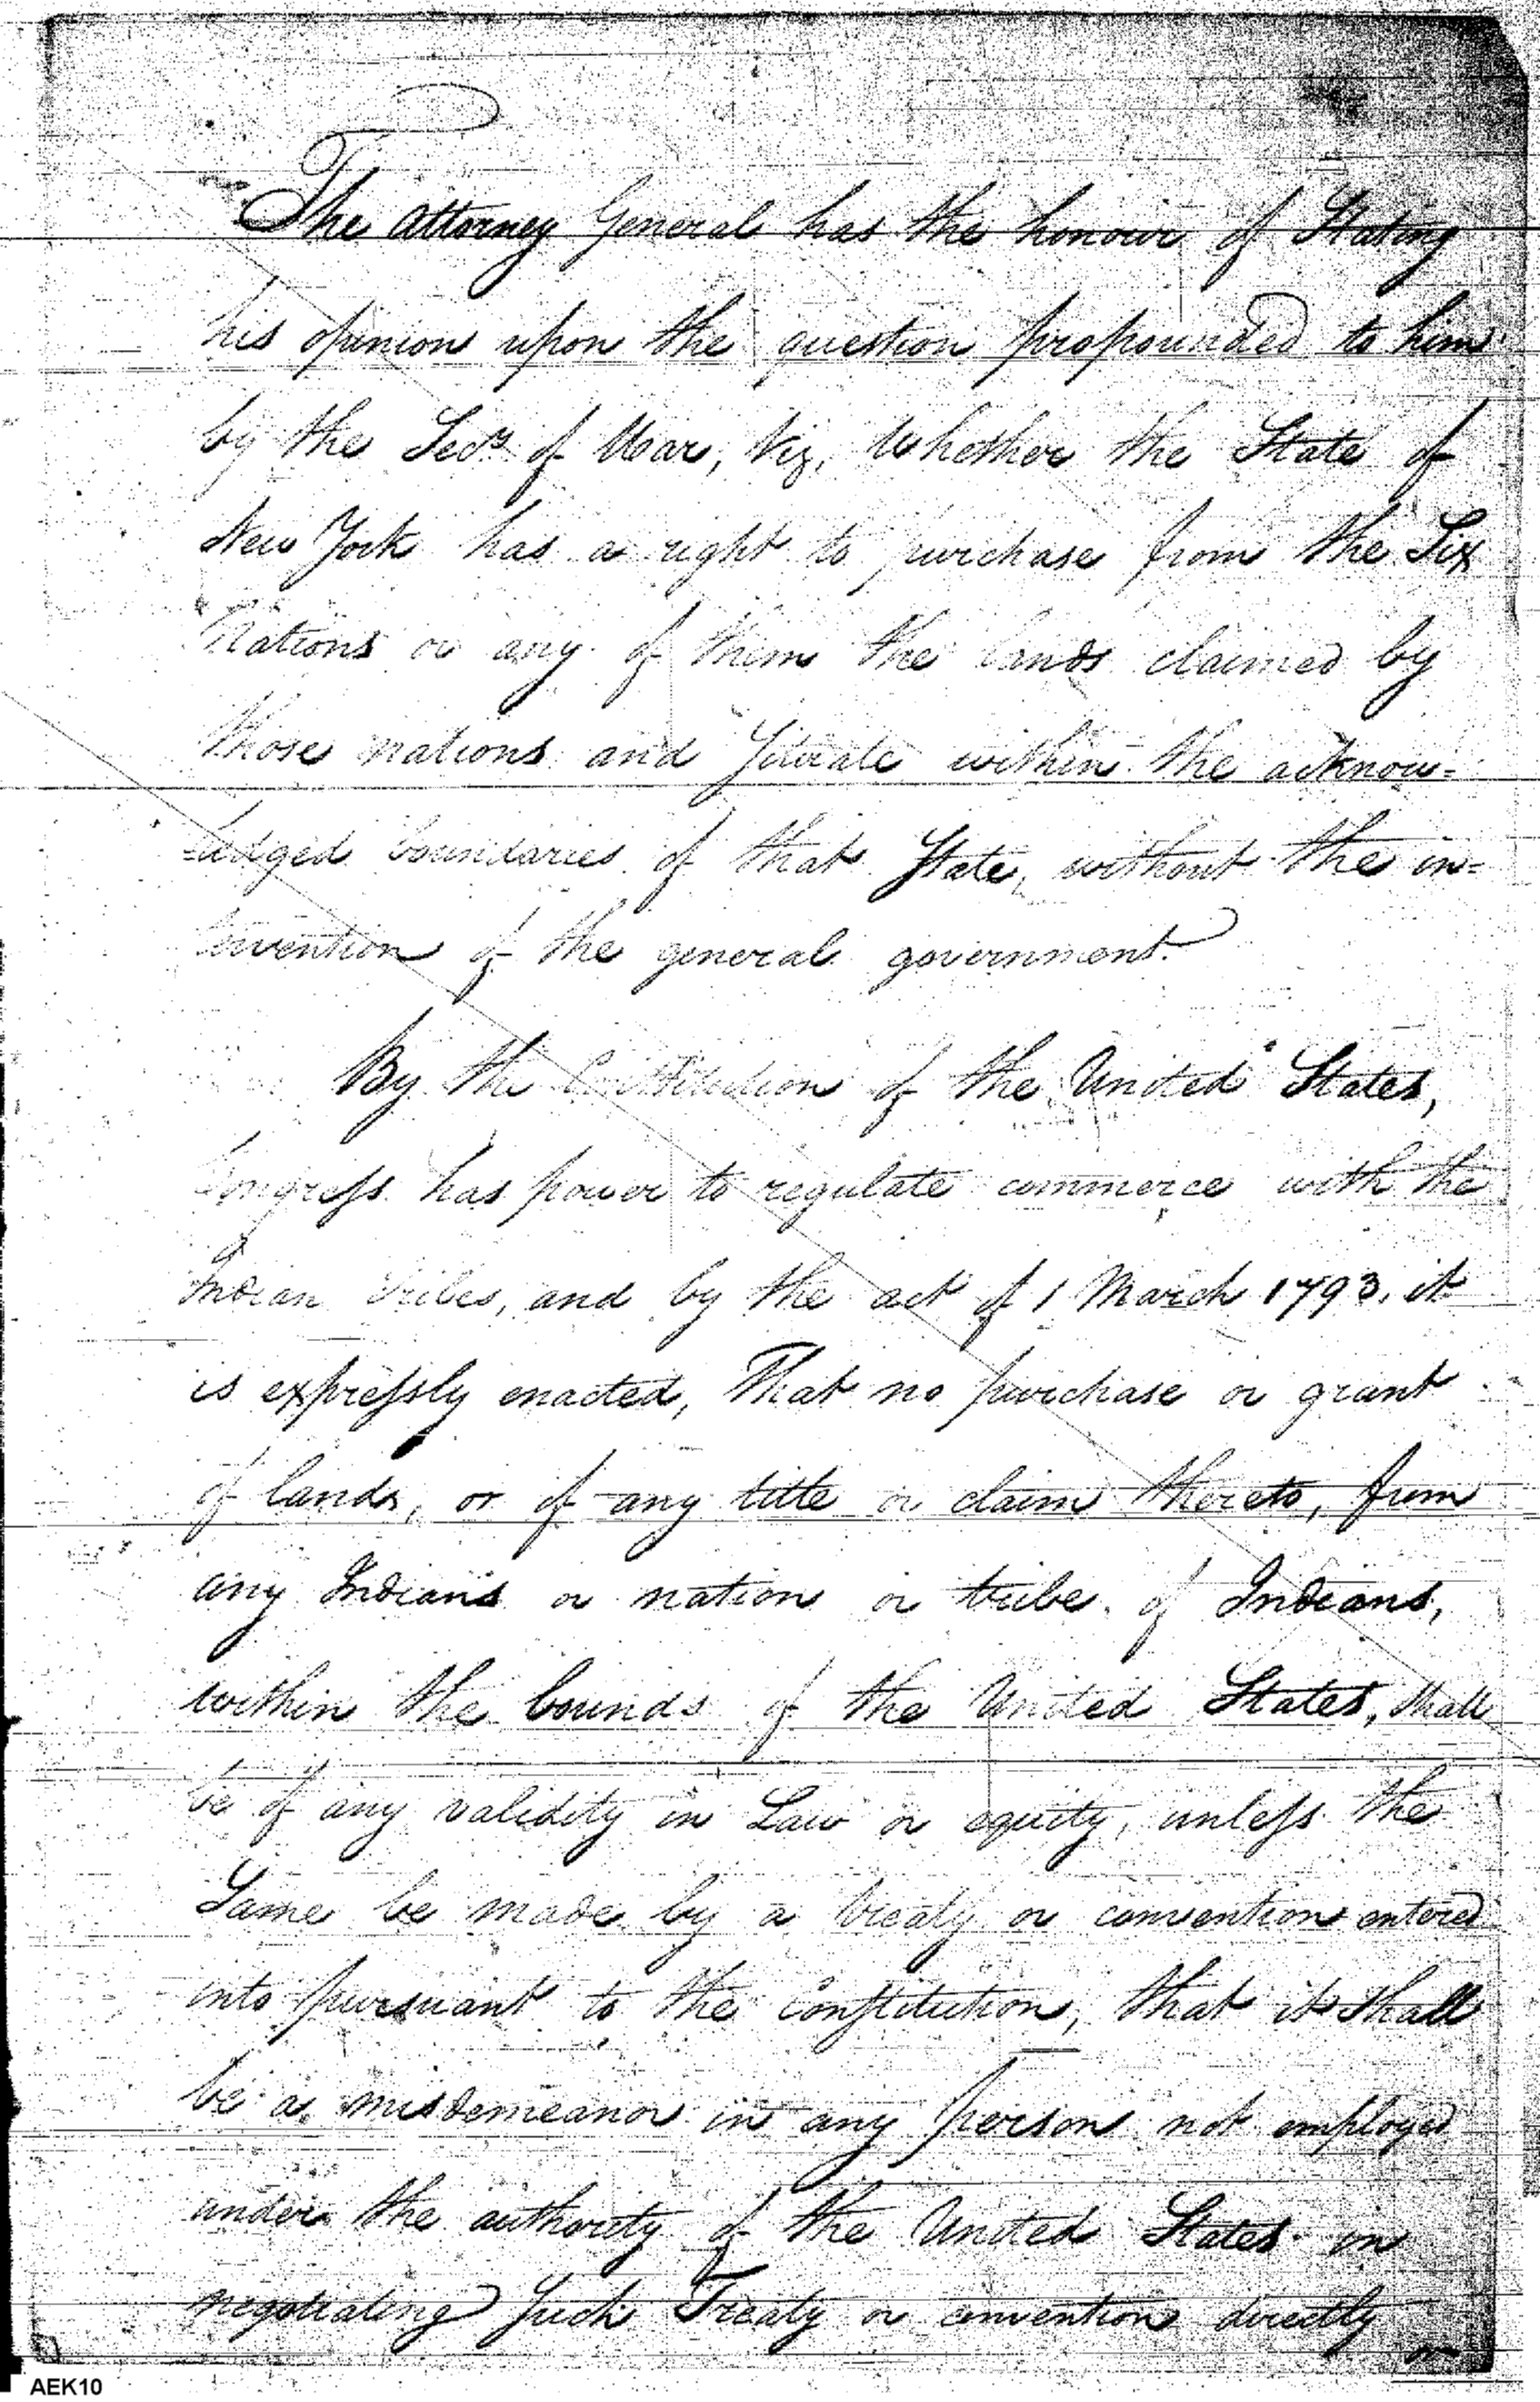 The Attorney General has the honour of Stating
his opinion upon the question propounded to him
by the Secy of War, Viz, Whether the State of
New York has a right to purchase from the Six
Nations or any of them the lands claimed by
those nations and Situate within the acknow=
=ledged boundaries of that State, without the in=
tervention of the general government.
By the Constitution of the United States,
Congress has power to regulate commerce with the
Indian tribes, and by the act of 1 March 1793, it
is expressly enacted, That no purchase or grant
of lands, or of any title or claim thereto, from
any Indians or nation or tribe of Indians,
within the bounds of the United States, shall
be of any validity in Law or equity, unless the
Same be made by a treaty or convention entered
into pursuant to the constitution, that it shall
be a misdemeanor in any person not employed
under the authority of the United States in
negotiating Such Treaty or convention directly
or
AEK10